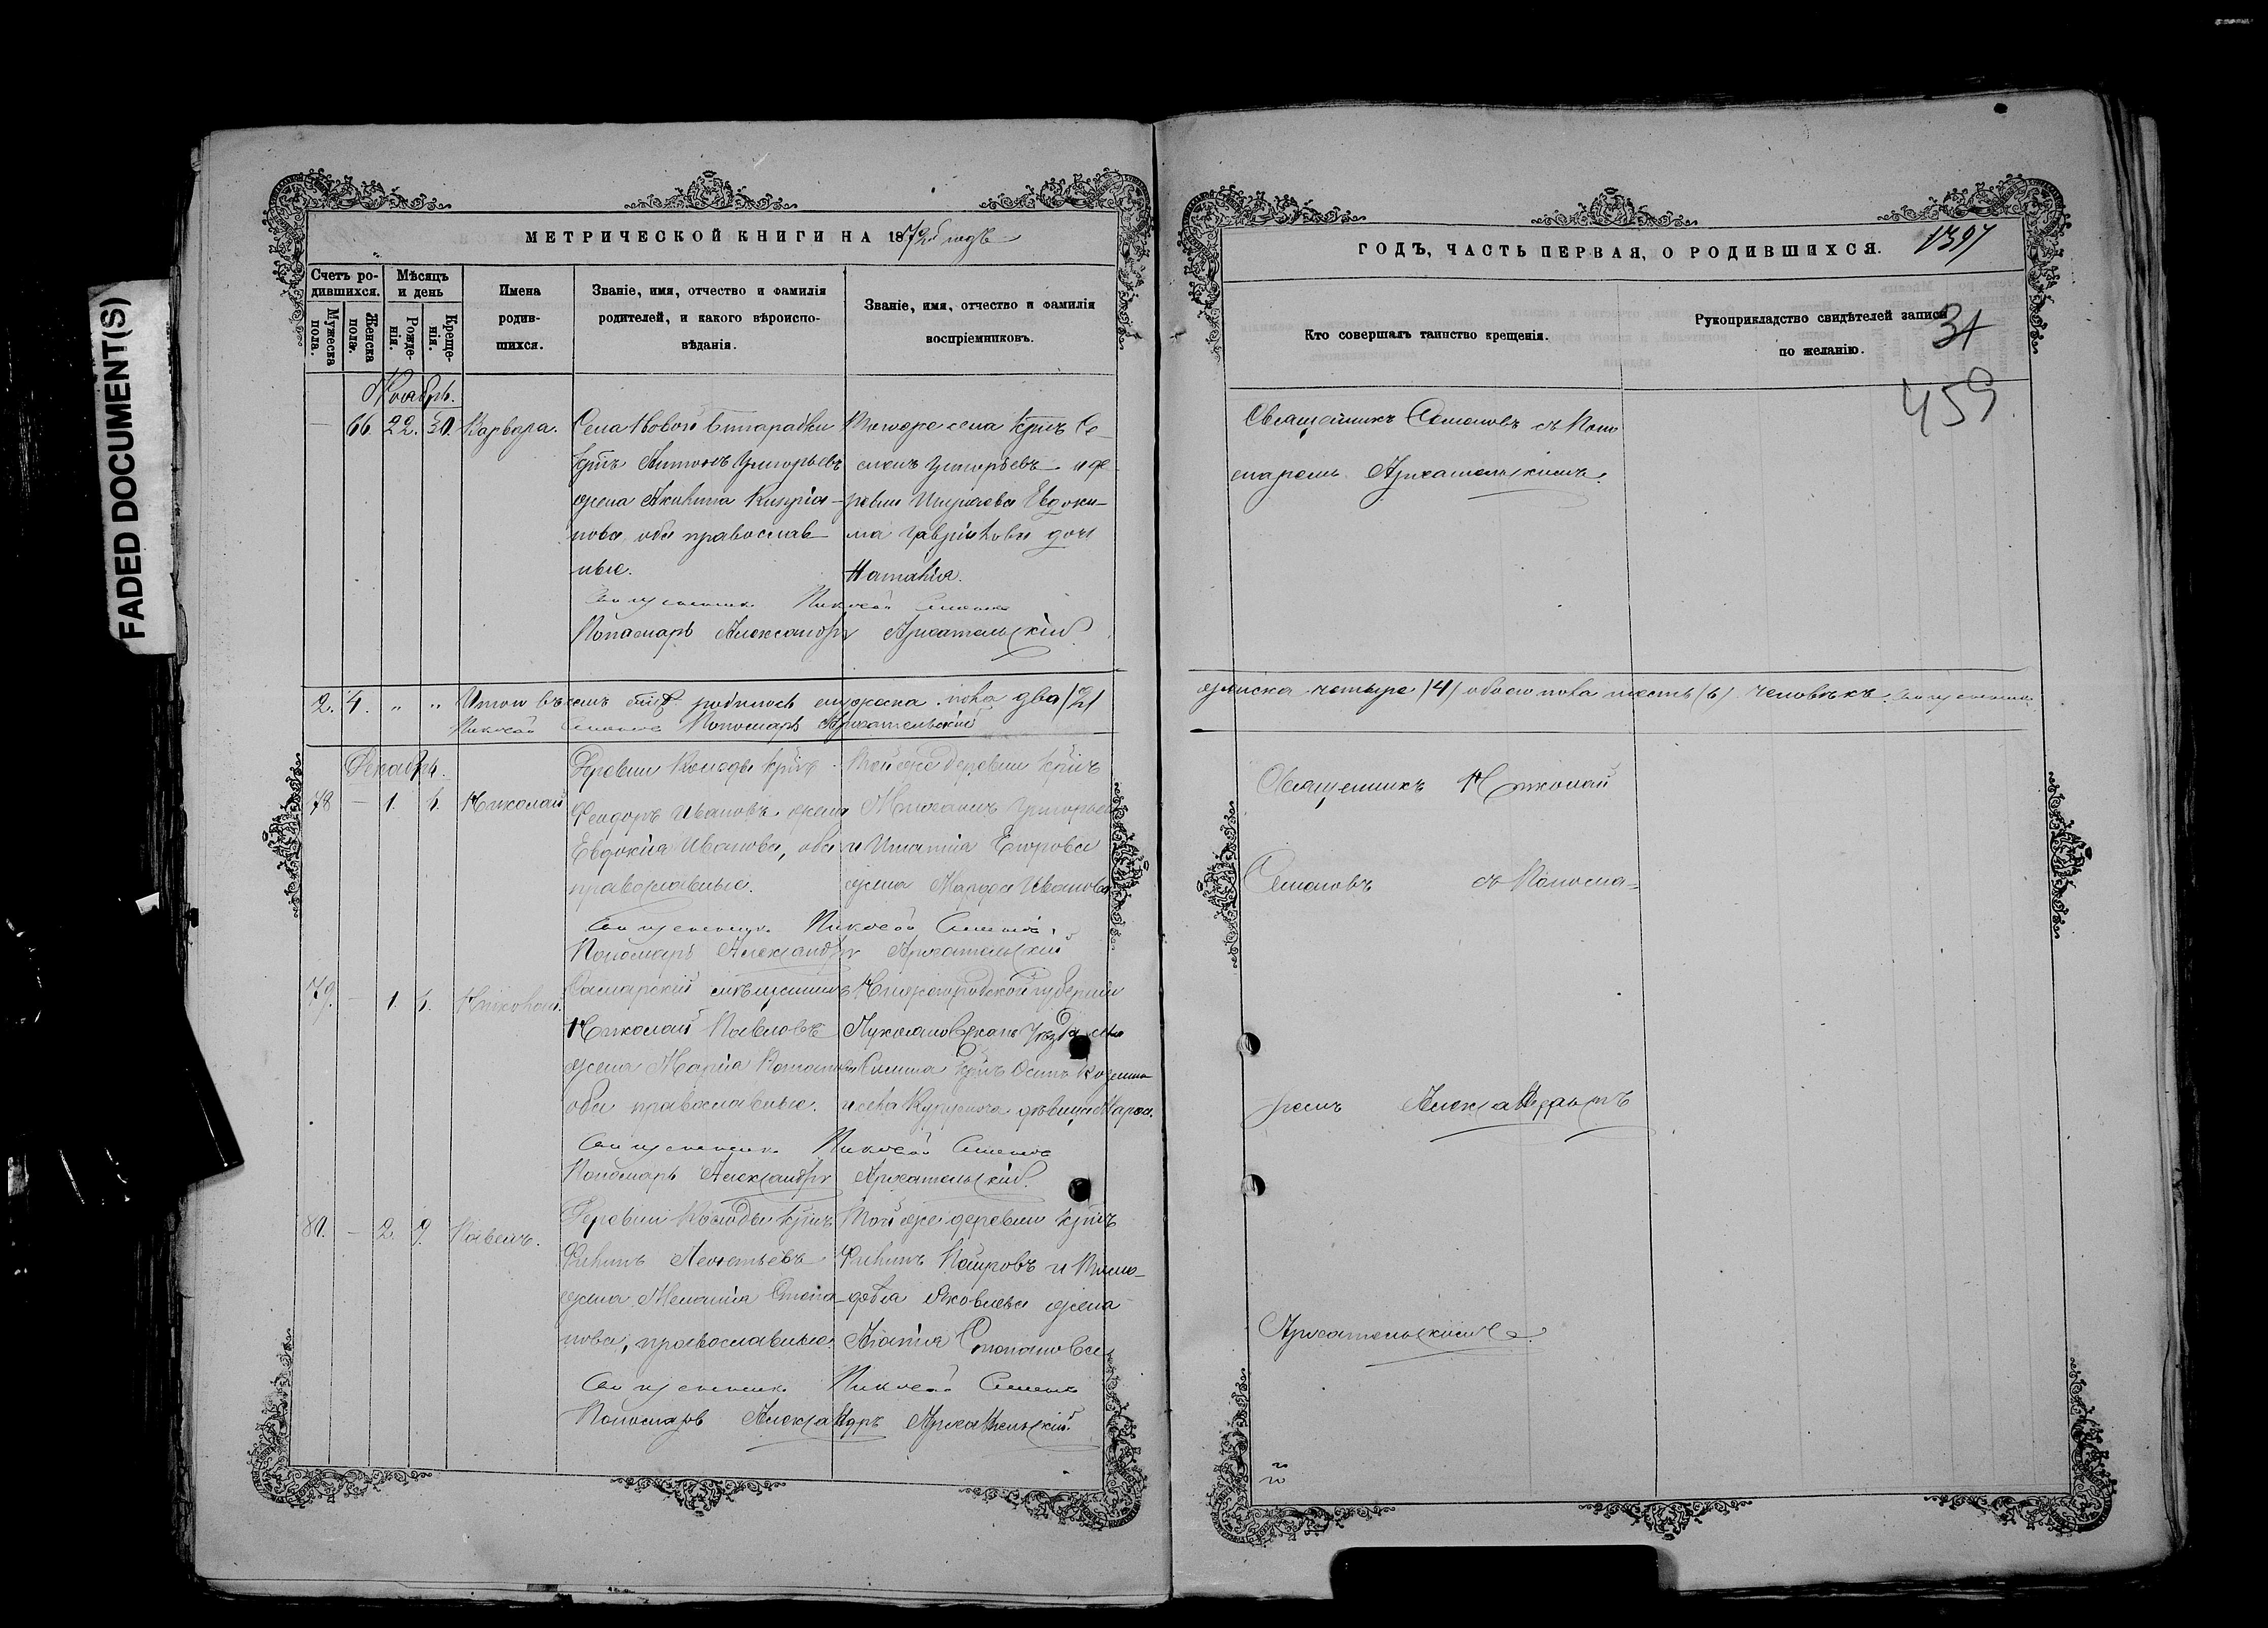 FADED DOCUMENT(S)
МЕТРИЧЕСКОЙ КНИГИ НА 1872й годъ
Счетъ ро-
дившихся.
Мужеска
пола.
Женска
пола.
Мѣсяцъ
и день
Рожде-
нія.
Креще-
нія.
Имена
родив-
шихся.
Званіе, имя, отчество и фамилія
родителей, и какого вѣроиспо-
вѣданія.
Званіе, имя, отчество и фамилія
воспріемниковъ.
Ноябрь.
66. 22. 30. Варвара.
Села Новой
крнъ Антонъ Григорьевъ
жена Акилина Кипріа-
нова оба православ-
ные.
Тогоже села крнъ Се-
менъ Григорьевъ и де-
ревни Евдоки-
ма Гавріилова дочь
Наталія.
Священникъ Николай Семеновъ
Пономарь Александръ Архангельскій
2. 4. " " Итого въ семъ родилось мужеска пола два /2/
Николай Семеновъ Пономарь Архангельскій
Декабрь.
78 — 1. 6. Николай
Деревни крнъ
Феодоръ Ивановъ жена
Евдокія Иванова, оба
православные.
Той же деревни крнъ
Григорьевъ
и Игнатія Егорова
жена Марфа Иванова
Священникъ Николай Семеновъ
Пономарь Александръ Архангельскій
79. — 1. 6. Николай.
Самарскій мѣщанинъ
Николай Павловъ
жена Марія
оба православные.
Нижегородской губерніи
Лукояновскаго Уѣзда села
крнъ Осипъ
и села дѣвица
Священникъ Николай Семеновъ
Пономарь Александръ Архангельскій
80. — 2. 9. Павелъ.
Деревни крнъ
Филипъ Леонтьевъ
жена Меланія Степа-
нова, православные.
Той же деревни крнъ
Филипъ и
Яковлева жена
Степанова
Священникъ Николай Семеновъ
Пономарь Александръ Архангельскій
ГОДЪ, ЧАСТЬ ПЕРВАЯ, О РОДИВШИХСЯ.
1397
Кто совершалъ таинство крещенія.
Рукоприкладство свидѣтелей записи
по желанію.
31
459
Священникъ Семеновъ съ Поно
маремъ Архангельскимъ.
женска четыре /4/ обоего пола шесть /6/ человѣкъ. Священникъ
Священникъ Николай
Семеновъ съ Понома-
ремъ Александромъ
Архангельскимъ